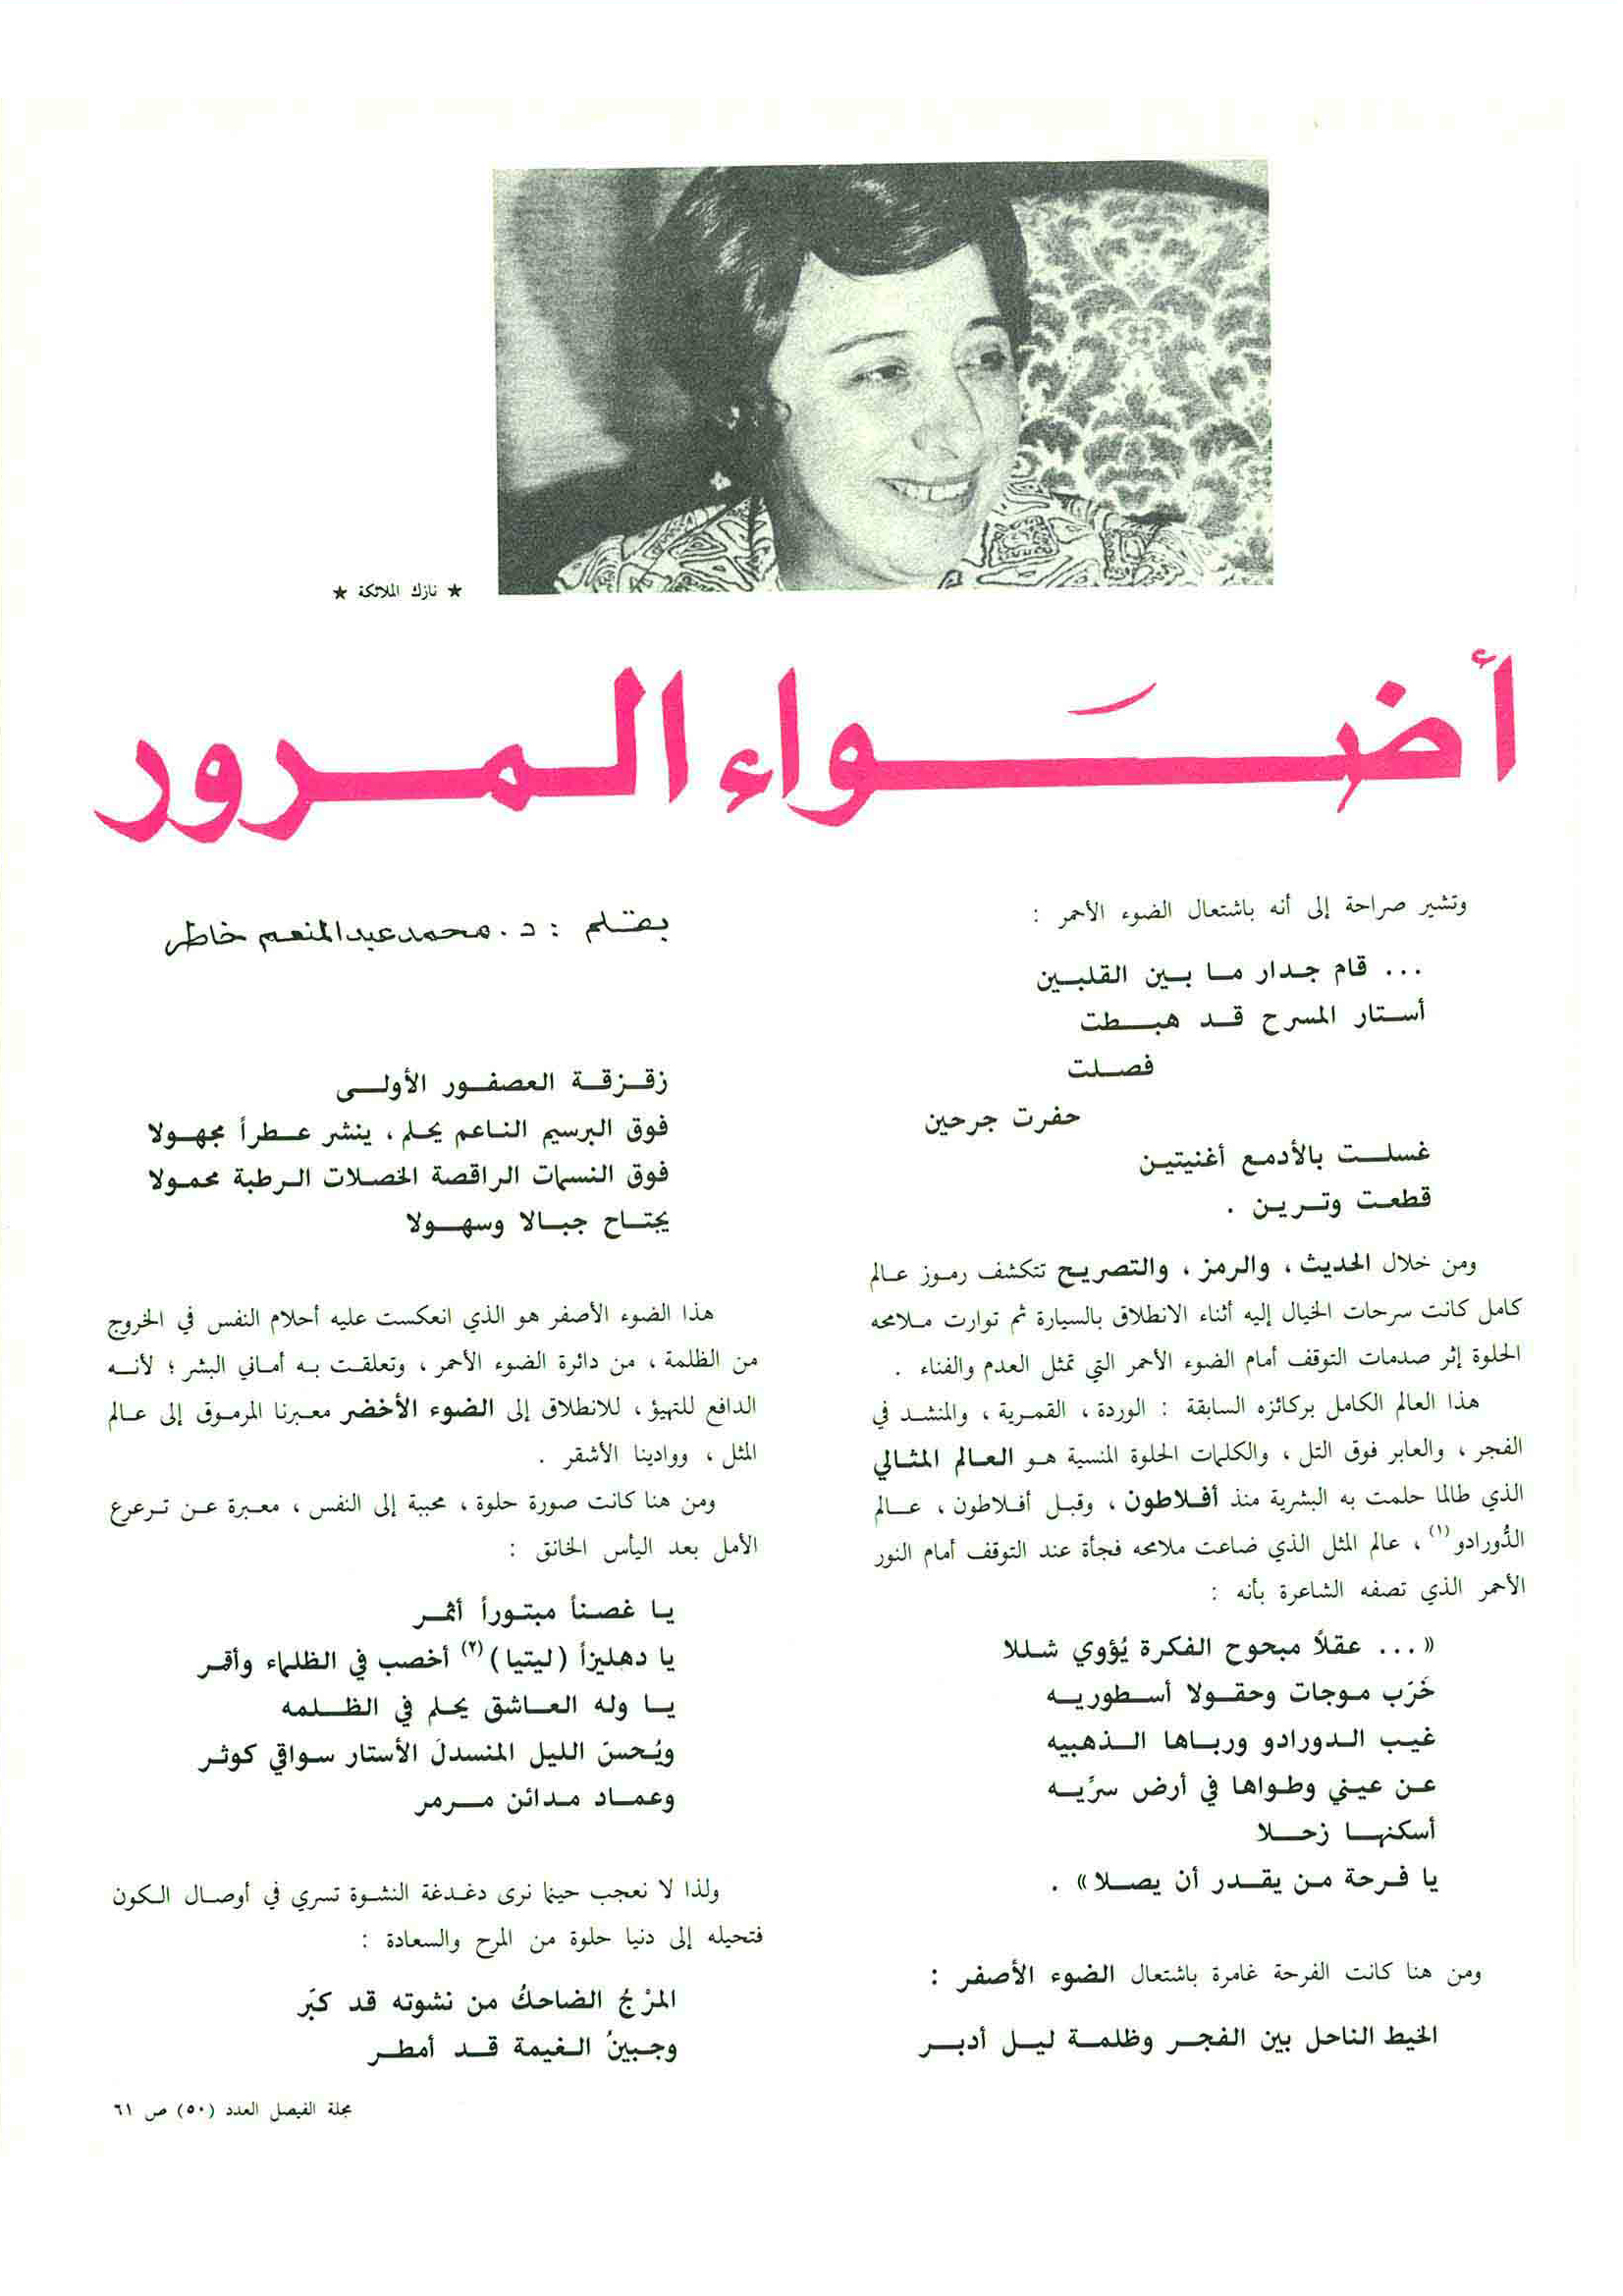 ★ نازك الملائكة ★
أضواء المرور
بقلم : د. محمد عبد المنعم خاطر
وتشير صراحة إلى أنه باشتعال الضوء الأحمر :
... قام جدار ما بين القلبين
أستار المسرح قد هبطت
فصلت
حفرت جرحين
غسلت بالأدمع أغنيتين
قطعت وترين .
ومن خلال الحديث ، والرمز ، والتصريح تتكشف رموز عالم
كامل كانت سرحات الخيال إليه أثناء الانطلاق بالسيارة ثم توارت ملامحه
الحلوة إثر صدمات التوقف أمام الضوء الأحمر التي تمثل العدم والفناء .
هذا العالم الكامل بركائزه السابقة : الوردة ، القمرية ، والمنشد في
الفجر ، والعابر فوق التل ، والكلمات الحلوة المنسية هو العالم المثالي
الذي طالما حلمت به البشرية منذ أفلاطون ، وقبل أفلاطون ، عالم
الدُّورادو (١) ، عالم المثل الذي ضاعت ملامحه فجأة عند التوقف أمام النور
الأحمر الذي تصفه الشاعرة بأنه :
« ... عقلاً مبحوح الفكرة يُؤوي شللا
خَرّب موجات وحقولا أسطوريه
غيب الدورادو ورباها الذهبيه
عن عيني وطواها في أرض سرِّيه
أسكنها زحلا
يا فرحة من يقدر أن يصلا » .
ومن هنا كانت الفرحة غامرة باشتعال الضوء الأصفر :
الخيط الناحل بين الفجر وظلمة ليل أدبر
زقزقة العصفور الأولى
فوق البرسيم الناعم يحلم ، ينشر عطراً مجهولا
فوق النسمات الراقصة الخصلات الرطبة محمولا
يجتاح جبالا وسهولا
هذا الضوء الأصفر هو الذي انعكست عليه أحلام النفس في الخروج
من الظلمة ، من دائرة الضوء الأحمر ، وتعلقت به أماني البشر ؛ لأنه
الدافع للتهيؤ ، للانطلاق إلى الضوء الأخضر معبرنا المرموق إلى عالم
المثل ، ووادينا الأشقر .
ومن هنا كانت صورة حلوة ، محببة إلى النفس ، معبرة عن ترعرع
الأمل بعد اليأس الخانق :
يا غصناً مبتوراً أثمر
يا دهليزاً (ليتيا) (٢) أخصب في الظلماء وأقمر
يا وله العاشق يحلم في الظلمه
ويُحسنّ الليل المنسدلَ الأستار سواقي كوثر
وعماد مدائن مرمر
ولذا لا نعجب حينما نرى دغدغة النشوة تسري في أوصال الكون
فتحيله إلى دنيا حلوة من المرح والسعادة :
المرْجُ الضاحكُ من نشوته قد كبّر
وجبينُ الغيمة قد أمطر
مجلة الفيصل العدد (٥٠) ص ٦١